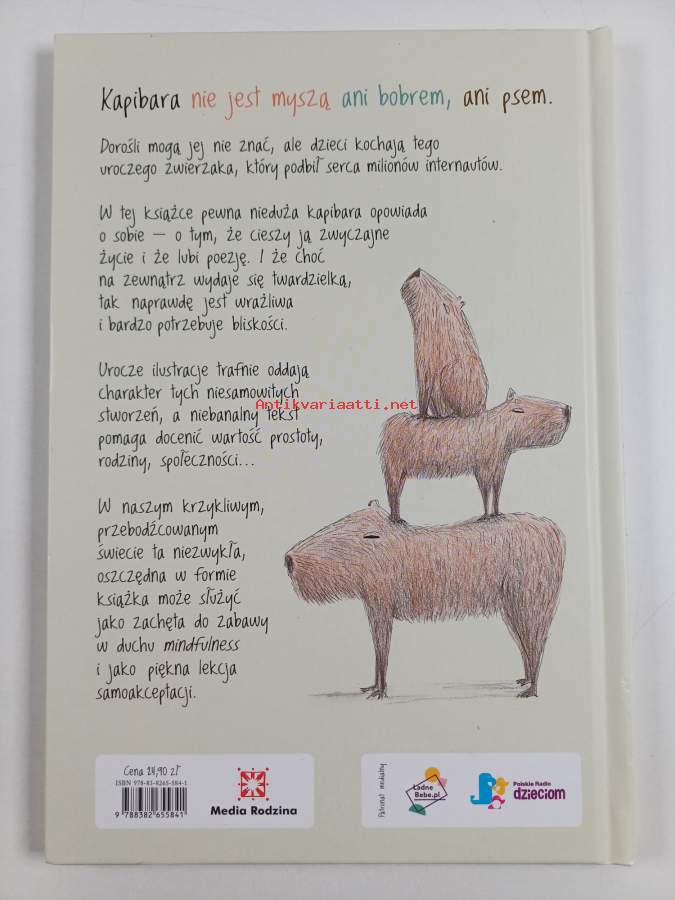 Kapibara nie jest myszą ani bobrem, ani psem.
Dorośli mogą jej nie znać, ale dzieci kochają tego
uroczego zwierzaka, który podbił serca milionów internautów.
W tej książce pewna nieduża kapibara opowiada
o sobie – o tym, że cieszy ją zwyczajne
życie i że lubi poezję. I że choć
na zewnątrz wydaje się twardzielką,
tak naprawdę jest wrażliwa
i bardzo potrzebuje bliskości.
Urocze ilustracje trafnie oddają
charakter tych niesamowitych
Antikvariaatti.net
stworzeń, a niebanalny tekst
pomaga docenić wartość prostoty,
rodziny, społeczności...
W naszym krzykliwym,
przebodźcowanym
świecie ta niezwykła,
oszczędna w formie
książka może służyć
jako zachęta do zabawy
w duchu mindfulness
i jako piękna lekcja
samoakceptacji.
Cena 24,90 zł
ISBN 978-83-8265-584-1
9 788382 655841
Media Rodzina
Patronat medialny
Ładne
Bebe.pl
Polskie Radio
dzieciom